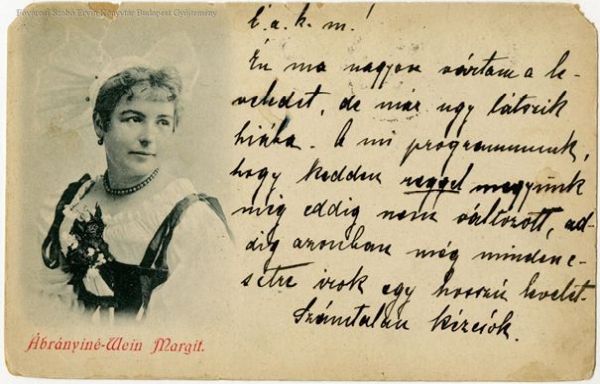 Fővárosi Szabó Ervin Könyvtár Budapest Gyűjtemény
É. a. k. m!
Én ma nagyon vártam a le-
veledet, de már ugy látszik
hiába. A mi programmunk,
hogy kedden reggel megyünk
még eddig nem változott, ad-
dig azonban még minden e-
setre irok egy hosszú levelet.
Számtalan kézcsók.
Ábrányiné-Wein Margit.